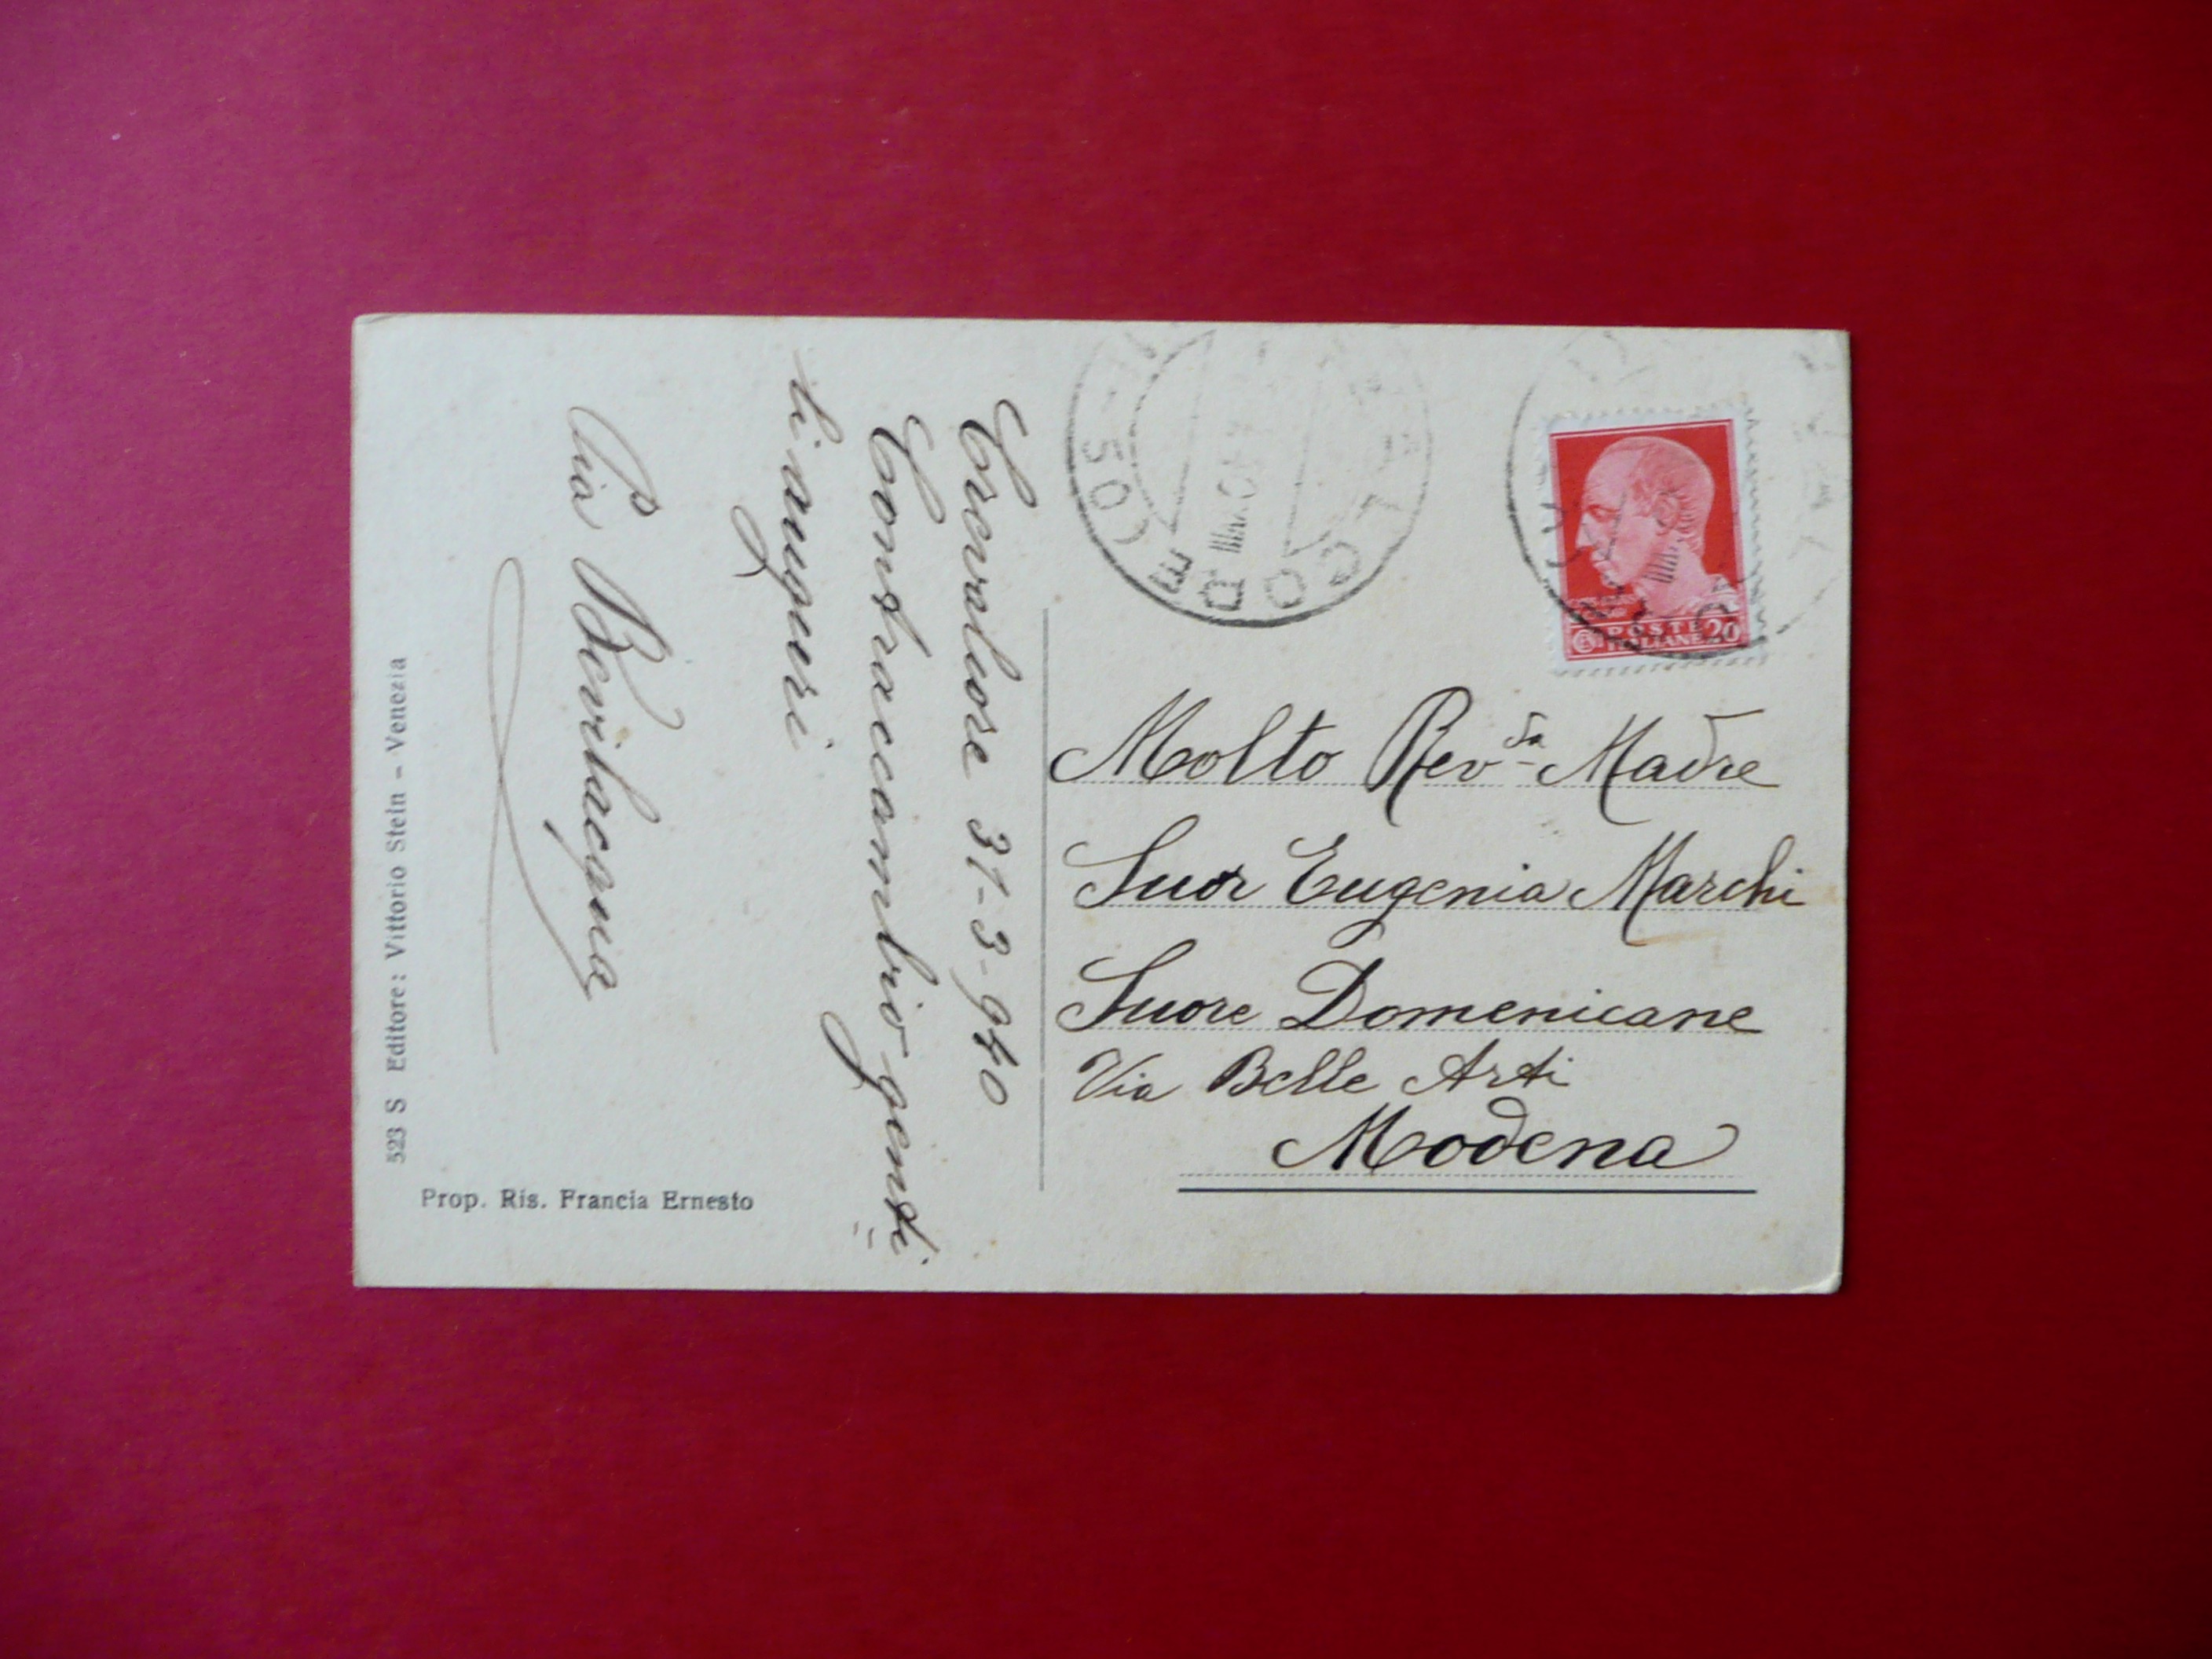 Crevalcore 31-3-940
Contraccambio genti=
li auguri
Pia Bevilacqua
523 S Editore: Vittorio Stein - Venezia
Prop. Ris. Francia Ernesto
POSTE
ITALIANE 20
Molto Rev.da Madre
Suor Eugenia Marchi
Suore Domenicane
Via Belle Arti
Modena